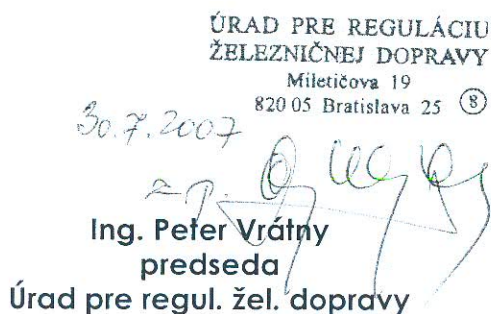 ÚRAD PRE REGULÁCIU
ŽELEZNIČNEJ DOPRAVY
Miletičova 19
820 05 Bratislava 25 8
30.7.2007
z.p.
Ing. Peter Vrátny
predseda
Úrad pre regul. žel. dopravy